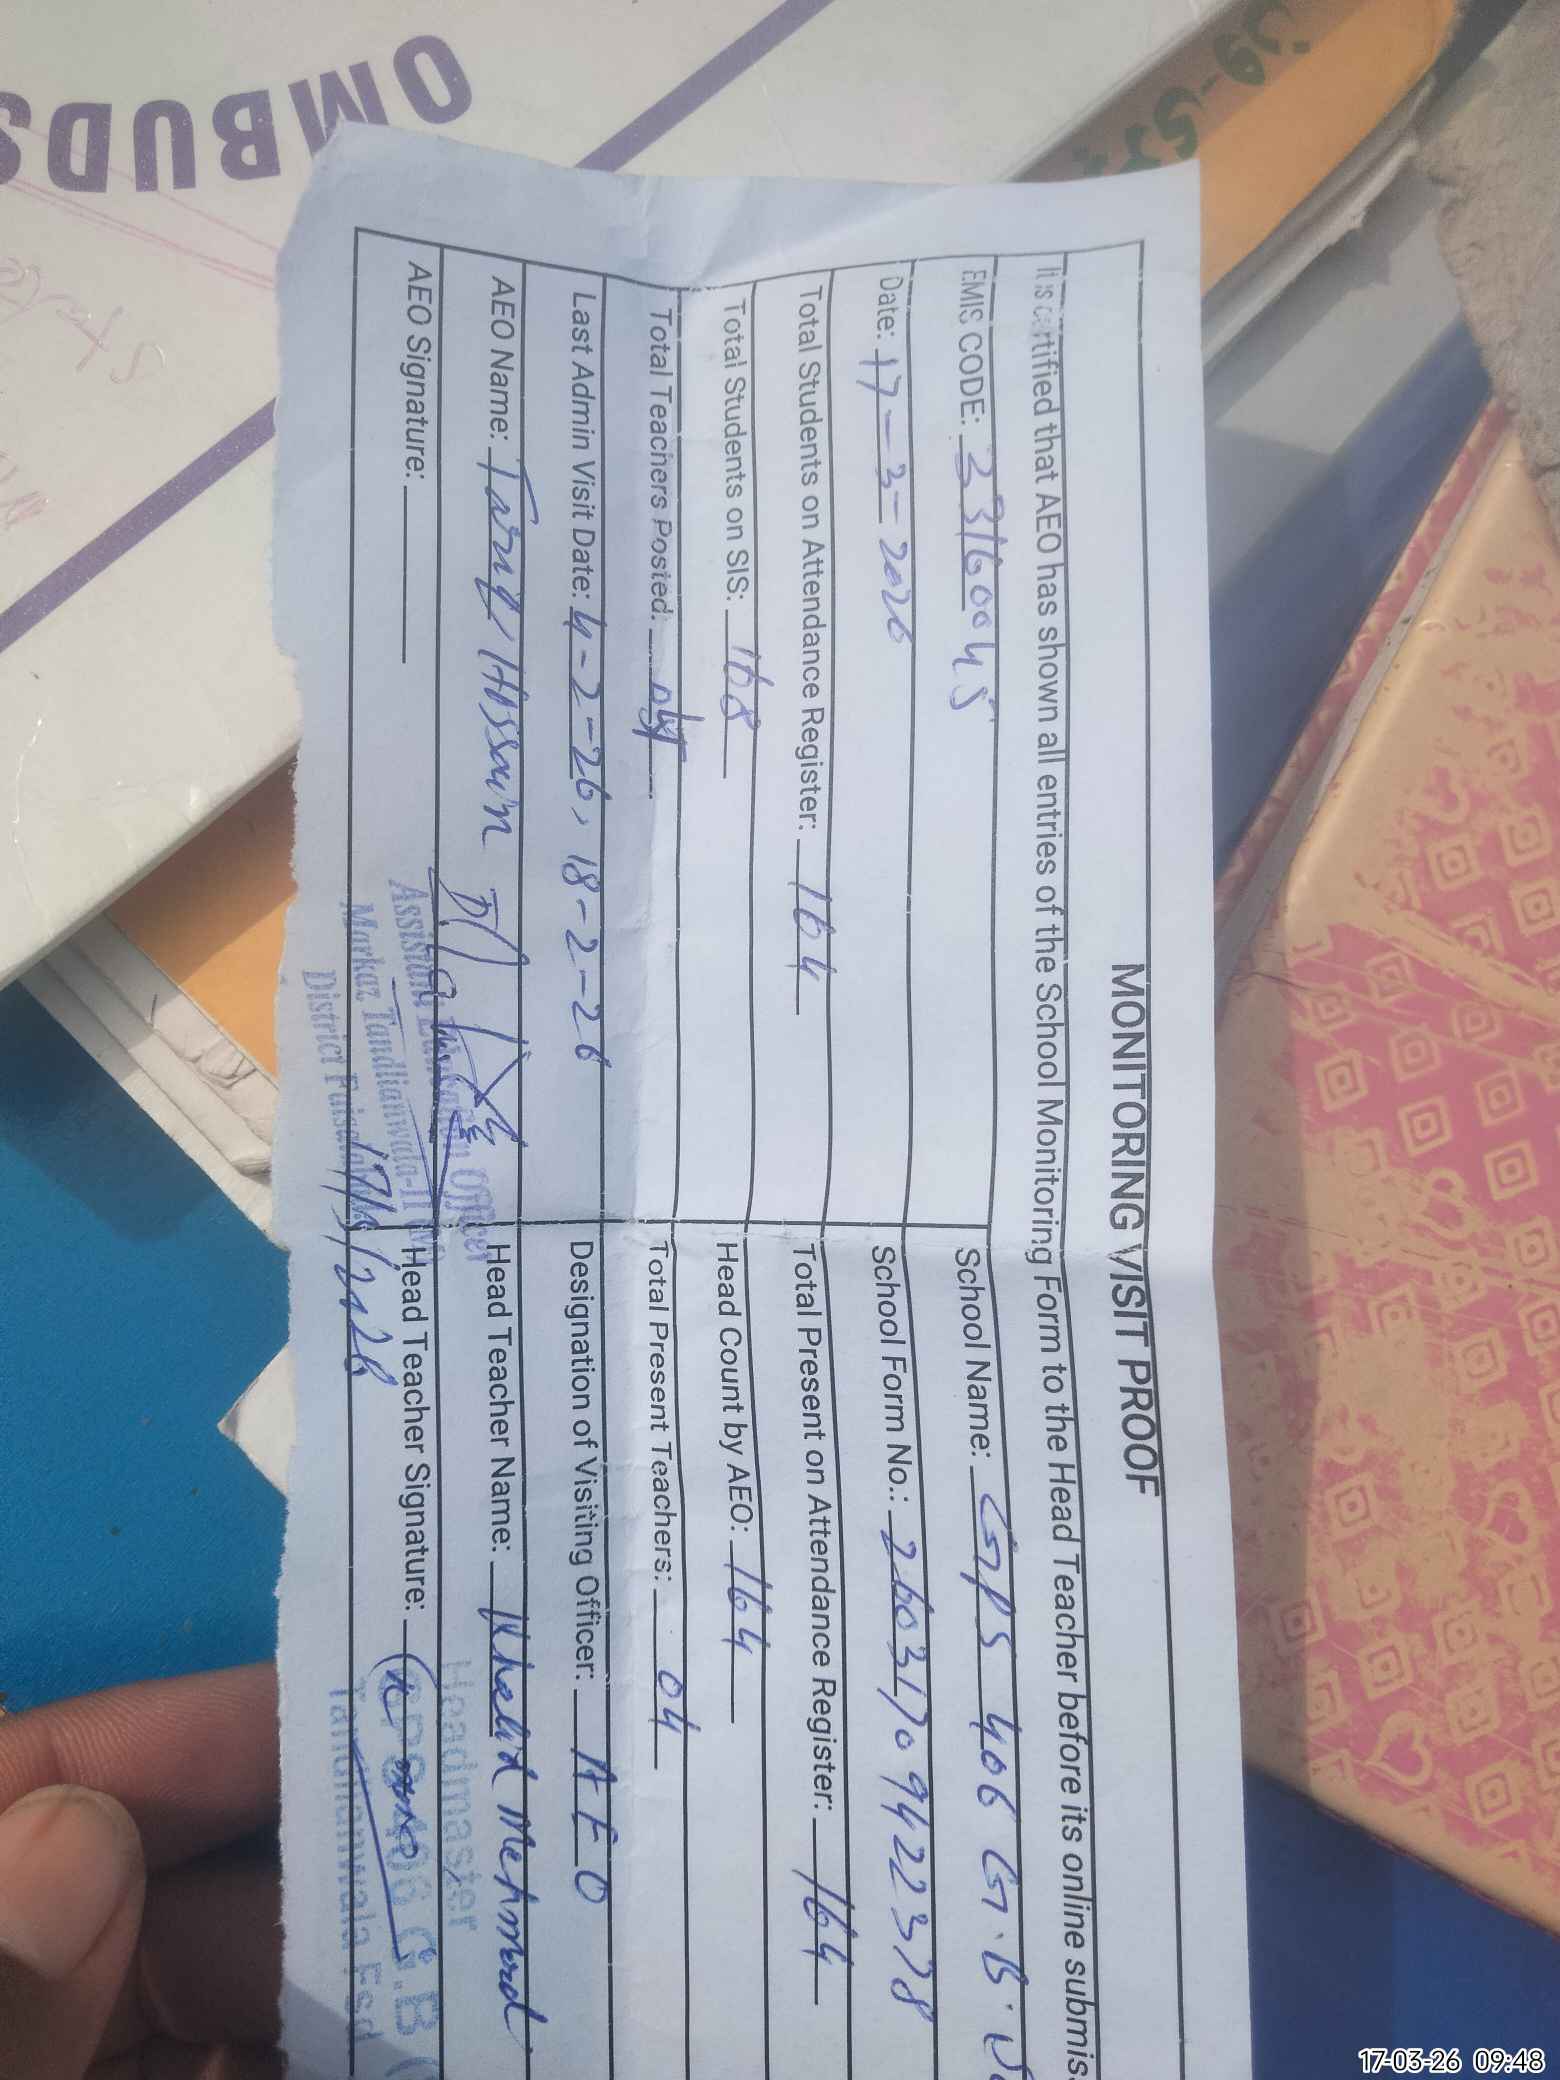 MONITORING VISIT PROOF
It is certified that AEO has shown all entries of the School Monitoring Form to the Head Teacher before its online submis
EMIS CODE: 33160045 School Name: GPS 406 G.B.
Date: 17-3-2026 School Form No.:
Total Students on Attendance Register: 164 Total Present on Attendance Register: 164
Total Students on SIS: 168 Head Count by AEO: 164
Total Teachers Posted: Total Present Teachers: 04
Last Admin Visit Date: 4-2-26, 18-2-26 Designation of Visiting Officer: AEO
AEO Name: Tariq Hussain Head Teacher Name: Khalid Mehmood
AEO Signature: Head Teacher Signature:
Assistant Education Officer
Markaz Tandlianwala-II
District Faisalabad
Headmaster
GPS 406 G.B
Tandlianwala Fsd
OMBUDS
17-03-26 09:48